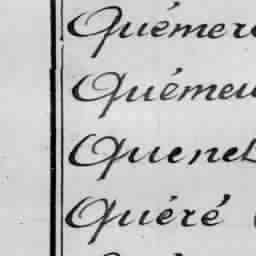 Quémere
Quémeu
Quenet
Quéré